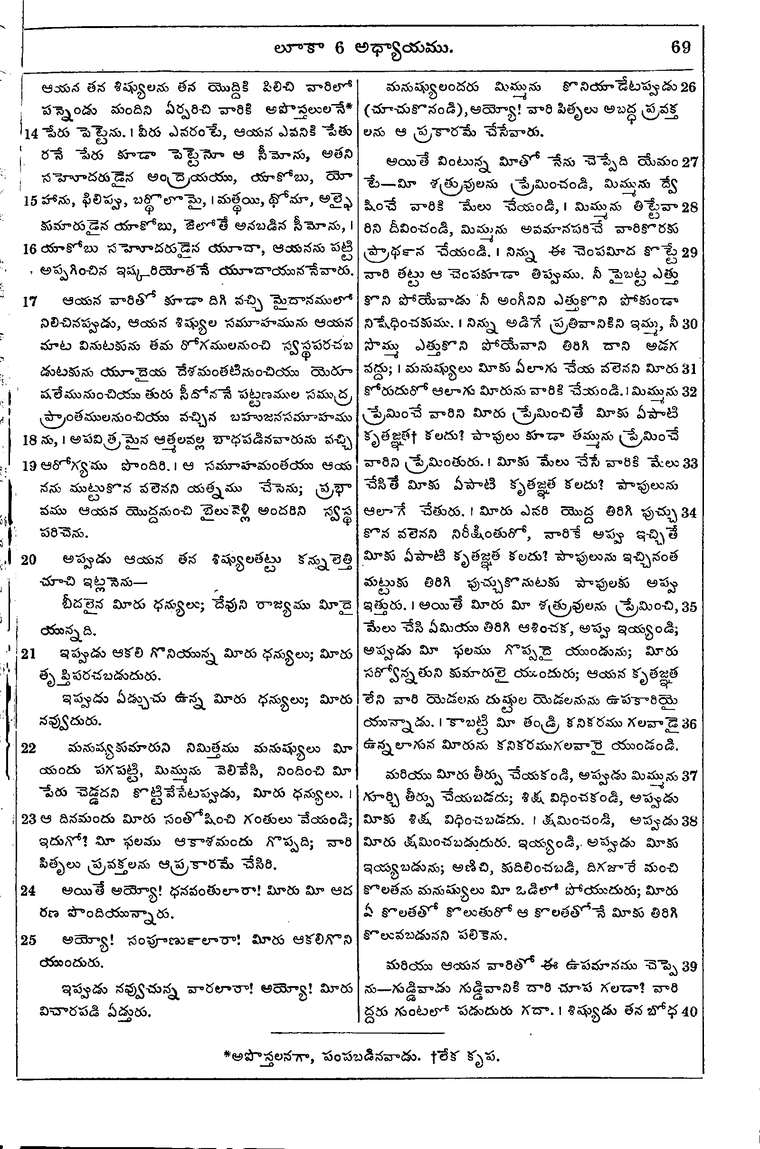 లూకా 6 అధ్యాయము. 69
ఆయన తన శిష్యులను తన యొద్దికి పిలిచి వారిలో
పన్నెండు మందిని ఏర్పరిచి వారికి అపొస్తలులనే*
14 పేరు పెట్టెను. । వీరు ఎవరంటే, ఆయన ఎవనికి పేతు
రనే పేరు కూడా పెట్టెనో ఆ సీమోను, అతని
సహోదరుడైన అంద్రెయయు, యాకోబు, యో
15 హాను, ఫిలిప్పు, బర్థొలొమై, । మత్థయి, థోమా, అల్ఫై
కుమారుడైన యాకోబు, జెలోతే అనబడిన సీమోను, ।
16 యాకోబు సహోదరుడైన యూదా, ఆయనను పట్టి
అప్పగించిన ఇష్కరియోతనే యూదాయుననేవారు.
17 ఆయన వారితో కూడా దిగి వచ్చి మైదానములో
నిలిచినప్పుడు, ఆయన శిష్యుల సమూహమును ఆయన
మాట వినుటకును తమ రోగములనుంచి స్వస్థపరచబ
డుటకును యూదైయ దేశమంతటినుంచియు యెరూ
షలేమునుంచియు తురు సీదోననే పట్టణముల సముద్ర
ప్రాంతములనుంచియు వచ్చిన బహుజనసమూహము
18 ను, । అపవిత్రమైన ఆత్మలవల్ల బాధపడినవారును వచ్చి
19 ఆరోగ్యము పొందిరి. । ఆ సమూహమంతయు ఆయ
నను ముట్టుకొన వలెనని యత్నము చేసెను; ప్రభా
వము ఆయన యొద్దనుంచి బైలువెళ్లి అందరిని స్వస్థ
పరిచెను.
20 అప్పుడు ఆయన తన శిష్యులతట్టు కన్నులెత్తి
చూచి ఇట్లనెను—
బీదలైన మీరు ధన్యులు; దేవుని రాజ్యము మీదై
యున్నది.
21 ఇప్పుడు ఆకలి గొనియున్న మీరు ధన్యులు; మీరు
తృప్తిపరచబడుదురు.
ఇప్పుడు ఏడ్చుచు ఉన్న మీరు ధన్యులు; మీరు
నవ్వుదురు.
22 మనుష్యకుమారుని నిమిత్తము మనుష్యులు మీ
యందు పగపట్టి, మిమ్మును వెలివేసి, నిందించి మీ
పేరు చెడ్డదని కొట్టివేసేటప్పుడు, మీరు ధన్యులు. ।
23 ఆ దినమందు మీరు సంతోషించి గంతులు వేయండి;
ఇదుగో? మీ ఫలము ఆకాశమందు గొప్పది; వారి
పితృలు ప్రవక్తలను ఆప్రకారమే చేసిరి.
24 అయితే అయ్యో! ధనవంతులారా! మీరు మీ ఆద
రణ పొందియున్నారు.
25 అయ్యో! సంపూర్ణులారా! మీరు ఆకలిగొని
యుందురు.
ఇప్పుడు నవ్వుచున్న వారలారా! అయ్యో! మీరు
విచారపడి ఏడ్తురు.
మనుష్యులందరు మిమ్మును కొనియాడేటప్పుడు 26
(చూచుకొనండి), అయ్యో! వారి పితృలు అబద్ధ ప్రవక్త
లను ఆ ప్రకారమే చేసేవారు.
అయితే వింటున్న మీతో నేను చెప్పేది యేమం 27
టే—మీ శత్రువులను ప్రేమించండి, మిమ్మును ద్వే
షించే వారికి మేలు చేయండి, । మిమ్మును తిట్టేవా 28
రిని దీవించండి, మిమ్మును అవమానపరిచే వారికొరకు
ప్రార్థన చేయండి. । నిన్ను ఈ చెంపమీద కొట్టే 29
వారి తట్టు ఆ చెంపకూడా తిప్పుము. నీ పైబట్ట ఎత్తు
కొని పోయేవాడు నీ అంగీనిని ఎత్తుకొని పోకుండా
నిషేధించకుము. । నిన్ను అడిగే ప్రతివానికిని ఇమ్ము, నీ 30
సొమ్ము ఎత్తుకొని పోయేవాని తిరిగి దాని అడగ
వద్దు; । మనుష్యులు మీకు ఏలాగు చేయ వలెనని మీరు 31
కోరుదురో ఆలాగు మీరును వారికి చేయండి. । మిమ్మును 32
ప్రేమించే వారిని మీరు ప్రేమించితే మీకు ఏపాటి
కృతజ్ఞత† కలదు? పాపులు కూడా తమ్మును ప్రేమించే
వారిని ప్రేమింతురు. । మీకు మేలు చేసే వారికి మేలు 33
చేసితే మీకు ఏపాటి కృతజ్ఞత కలదు? పాపులును
ఆలాగే చేతురు. । మీరు ఎవరి యొద్ద తిరిగి పుచ్చు 34
కొన వలెనని నిరీక్షింతురో, వారికే అప్పు ఇచ్చితే
మీకు ఏపాటి కృతజ్ఞత కలదు? పాపులును ఇచ్చినంత
మట్టుకు తిరిగి పుచ్చుకొనుటకు పాపులకు అప్పు
ఇత్తురు. । అయితే మీరు మీ శత్రువులను ప్రేమించి, 35
మేలు చేసి ఏమియు తిరిగి ఆశించక, అప్పు ఇయ్యండి;
అప్పుడు మీ ఫలము గొప్పదై యుండును; మీరు
సర్వోన్నతుని కుమారులై యుందురు; ఆయన కృతజ్ఞత
లేని వారి యెడలను దుష్టుల యెడలనును ఉపకారియై
యున్నాడు. । కాబట్టి మీ తండ్రి కనికరము గలవాడై 36
ఉన్నలాగున మీరును కనికరముగలవారై యుండండి.
మరియు మీరు తీర్పు చేయకండి, అప్పుడు మిమ్మును 37
గూర్చి తీర్పు చేయబడదు; శిక్ష విధించకండి, అప్పుడు
మీకు శిక్ష విధించబడదు. । క్షమించండి, అప్పుడు 38
మీరు క్షమించబడుదురు. ఇయ్యండి, అప్పుడు మీకు
ఇయ్యబడును; అణిచి, కుదిలించబడి, దిగజారే మంచి
కొలతను మనుష్యులు మీ ఒడిలో పోయుదురు; మీరు
ఏ కొలతతో కొలుతురో ఆ కొలతతోనే మీకు తిరిగి
కొలువబడునని పలికెను.
మరియు ఆయన వారితో ఈ ఉపమానము చెప్పె 39
ను—గుడ్డివాడు గుడ్డివానికి దారి చూప గలడా? వారి
ద్దరు గుంటలో పడుదురు గదా. । శిష్యుడు తన బోధ 40
*అపొస్తలనగా, పంపబడినవాడు. †లేక కృప.